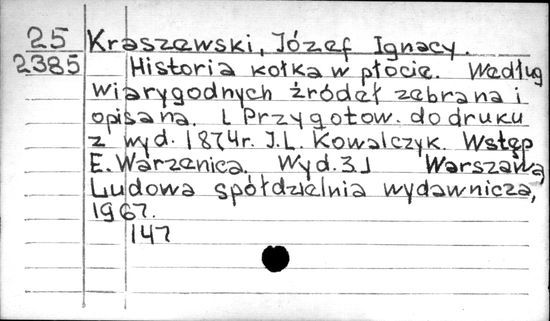 25 Kraszewski, Józef Ignacy.
2385 Historia kołka w płocie. Według
wiarygodnych źródeł zebrana i
opisana. [Przygotow. do druku
z wyd. 1874r. J.L. Kowalczyk. Wstęp
E. Warzenica. Wyd. 3.] Warszawa,
Ludowa spółdzielnia wydawnicza,
1967.
147